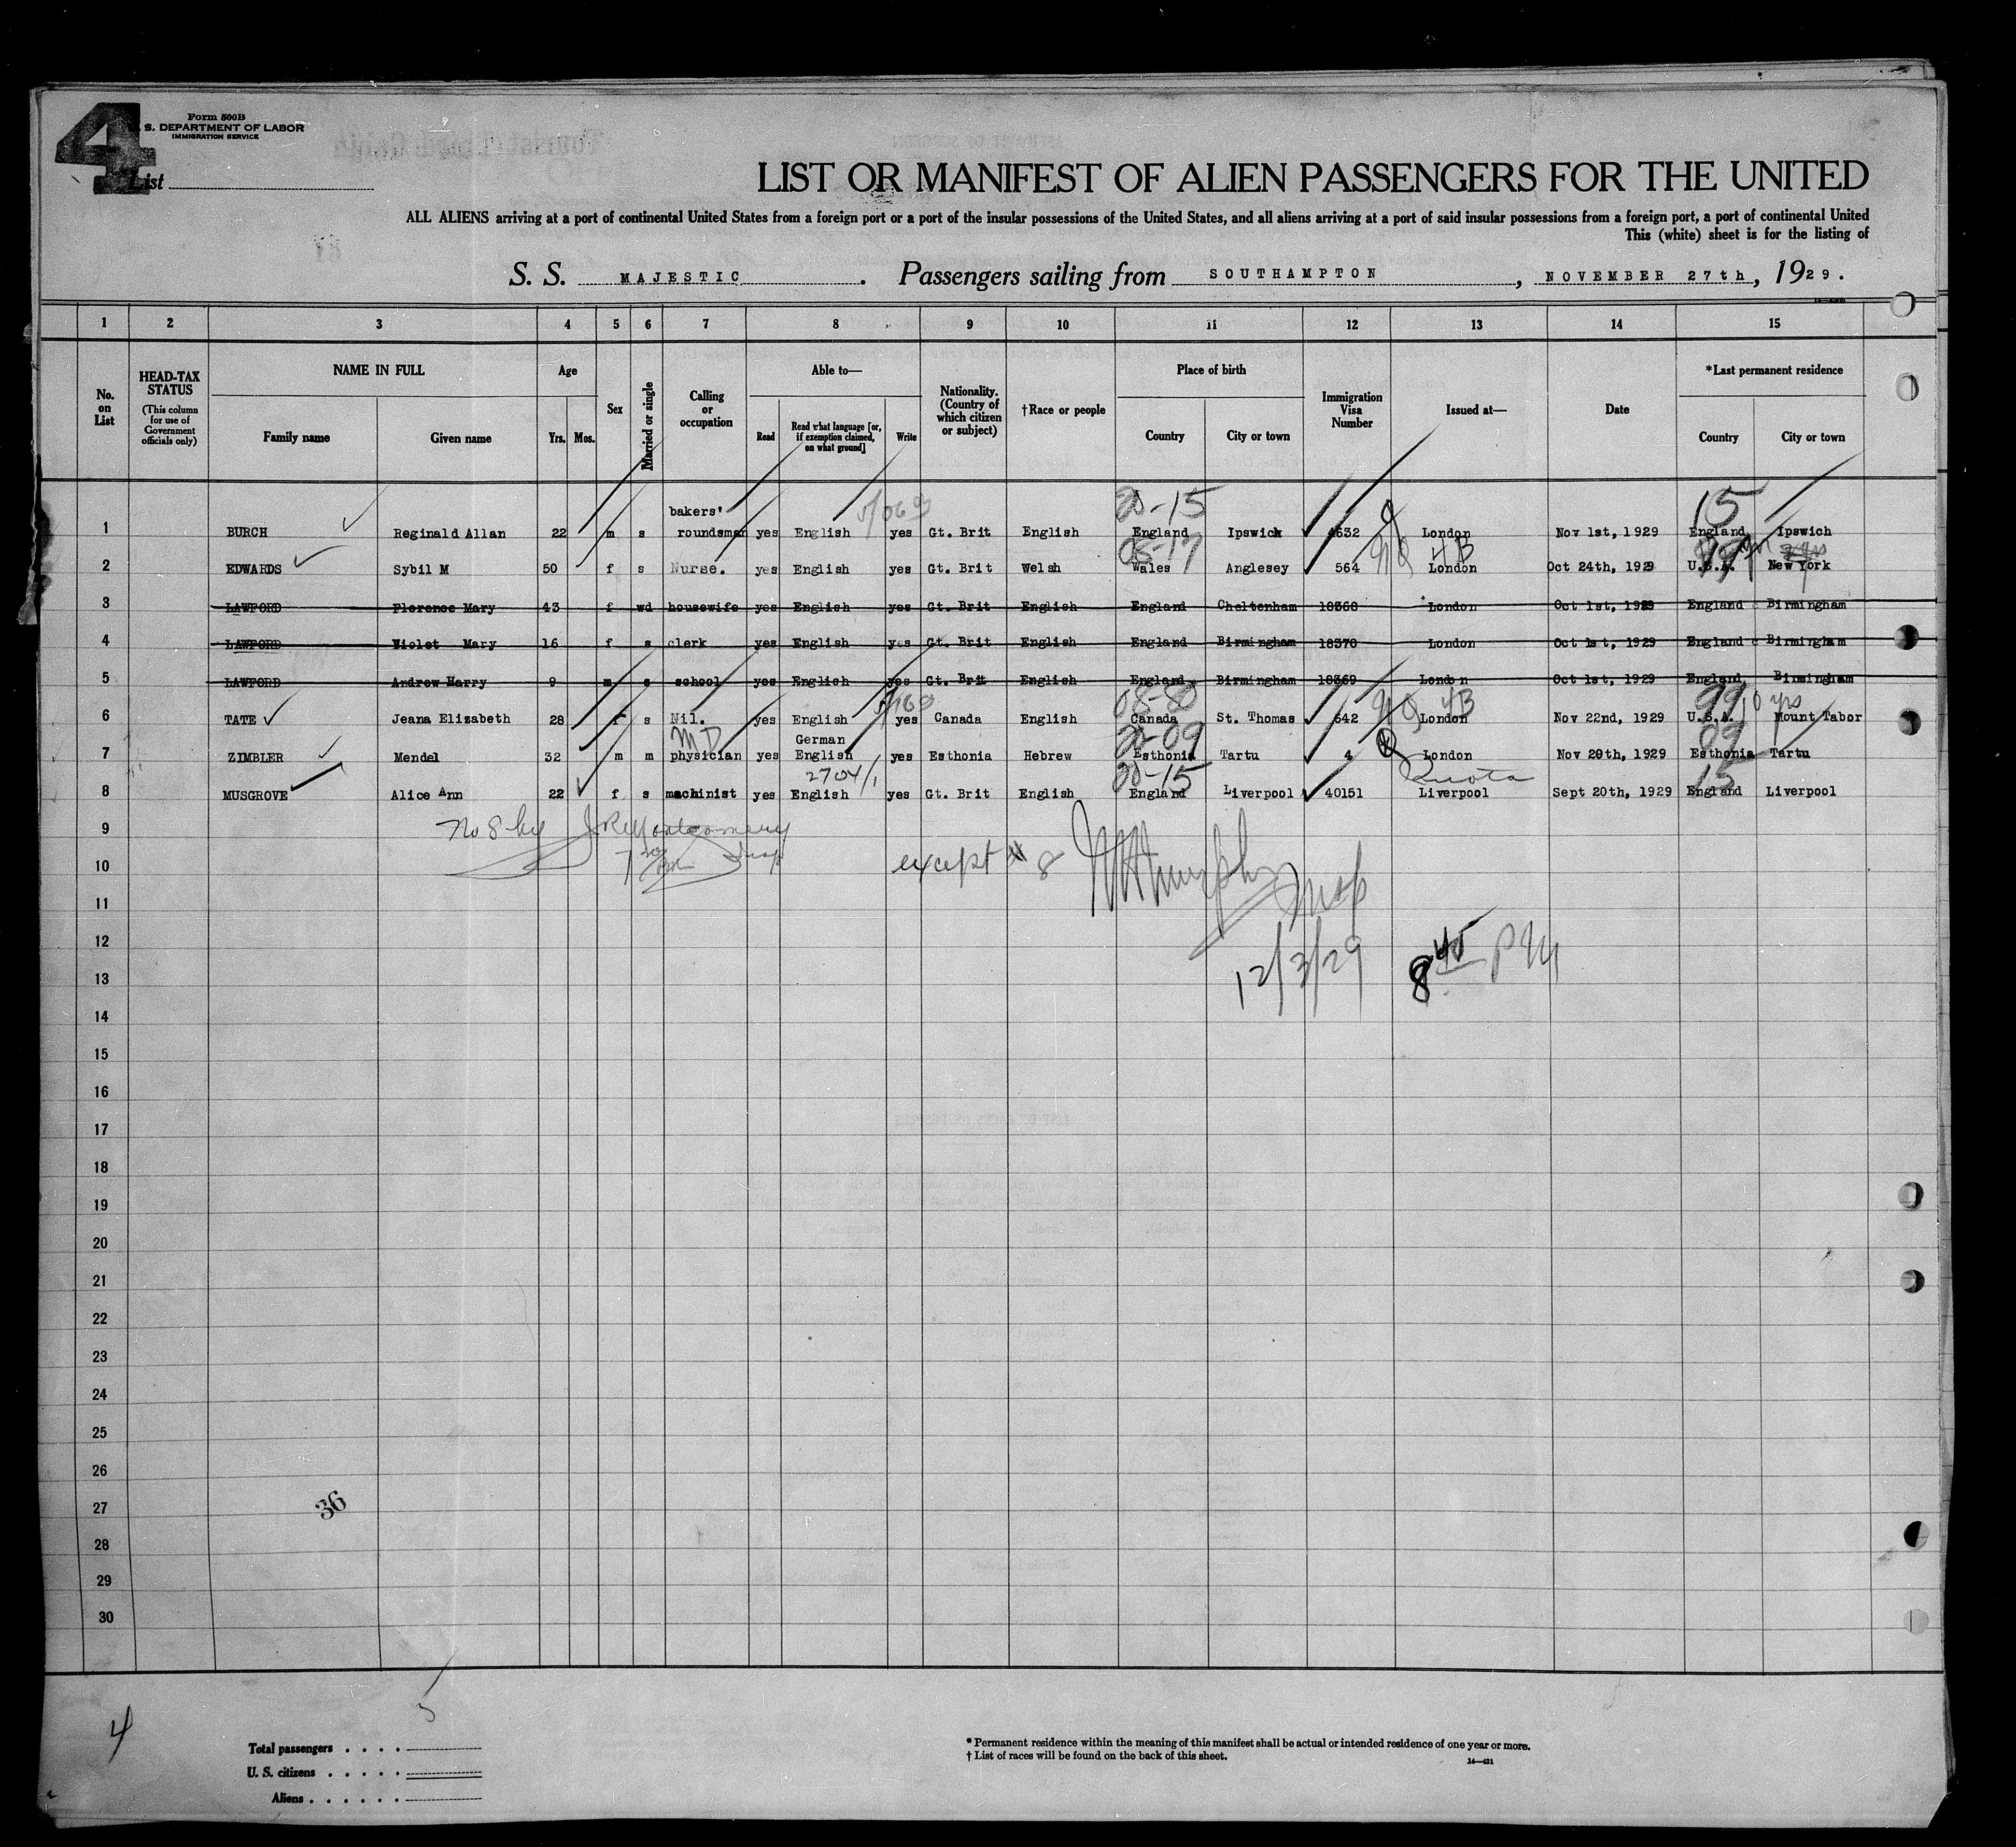 4
Form 500B
S. DEPARTMENT OF LABOR
IMMIGRATION SERVICE
List
LIST OR MANIFEST OF ALIEN PASSENGERS FOR THE UNITED
ALL ALIENS arriving at a port of continental United States from a foreign port or a port of the insular possessions of the United States, and all aliens arriving at a port of said insular possessions from a foreign port, a port of continental United
This (white) sheet is for the listing of
S. S. MAJESTIC. Passengers sailing from SOUTHAMPTON, NOVEMBER 27th, 1929.
1 2 3 4 5 6 7 8 9 10 11 12 13 14 15
No. on List
HEAD-TAX STATUS (This column for use of Government officials only)
NAME IN FULL
Family name Given name
Age
Yrs. Mos.
Sex
Married or single
Calling or occupation
Able to—
Read Read what language [or, if exemption claimed, on what ground] Write
Nationality. (Country of which citizen or subject)
†Race or people
Place of birth
Country City or town
Immigration Visa Number
Issued at—
Date
*Last permanent residence
Country City or town
20-15 15
1 BURCH Reginald Allan 22 m s bakers' roundsman yes English yes Gt. Brit English England Ipswick 4632 London Nov 1st, 1929 England Ipswich
08-17 4B
2 EDWARDS Sybil M 50 f s Nurse. yes English yes Gt. Brit Welsh Wales Anglesey 564 London Oct 24th, 1929 U.S.A. New York
3 LAWFORD Florence Mary 43 f wd housewife yes English yes Gt. Brit English England Cheltenham 18368 London Oct 1st, 1929 England Birmingham
4 LAWFORD Violet Mary 16 f s clerk yes English yes Gt. Brit English England Birmingham 18370 London Oct 1st, 1929 England Birmingham
5 LAWFORD Andrew Harry 9 m s school yes English yes Gt. Brit English England Birmingham 18369 London Oct 1st, 1929 England Birmingham
08-80 4B 99 10 yrs
6 TATE Jeana Elizabeth 28 f s Nil. yes English yes Canada English Canada St. Thomas 642 London Nov 22nd, 1929 U.S.A. Mount Tabor
MD 20-09 09
7 ZIMBLER Mendel 32 m m physician yes German English yes Esthonia Hebrew Esthonia Tartu 4 London Nov 20th, 1929 Esthonia Tartu
2704/1 20-15 Quota 15
8 MUSGROVE Alice Ann 22 f s machinist yes English yes Gt. Brit English England Liverpool 40151 Liverpool Sept 20th, 1929 England Liverpool
9
No 8 by JR Montgomery
10
except # 8
11
12
13
12/3/29 8 45 PM
14
15
16
17
18
19
20
21
22
23
24
25
26
27
36
28
29
30
4
Total passengers
U. S. citizens
Aliens
* Permanent residence within the meaning of this manifest shall be actual or intended residence of one year or more.
† List of races will be found on the back of this sheet.
14—431